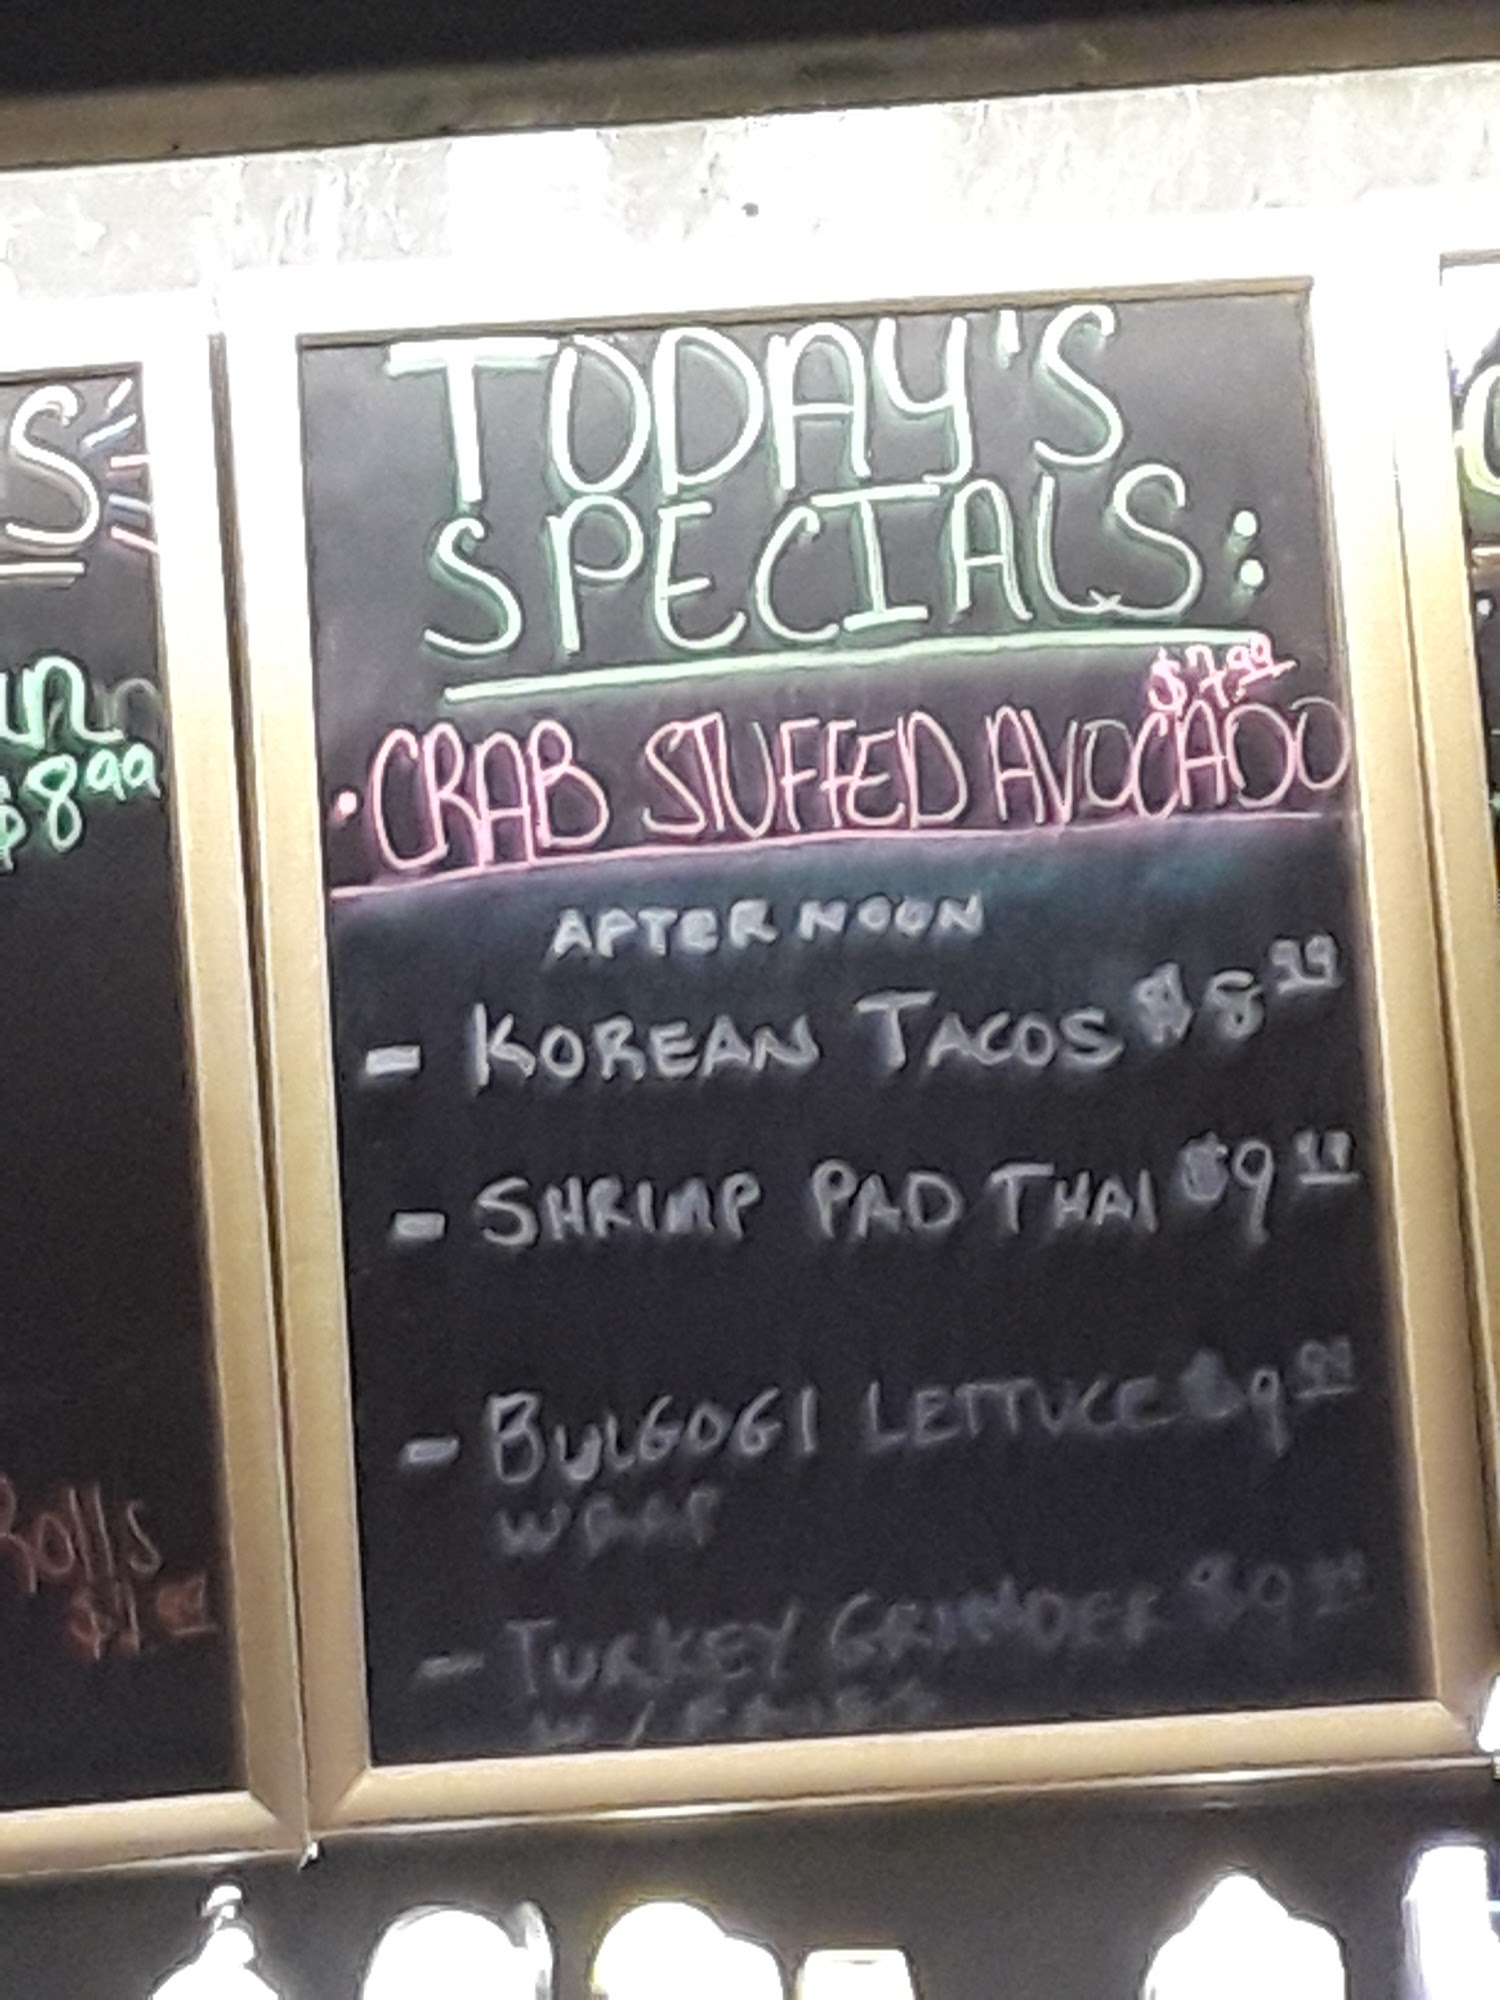 S
un
$8.99
Rolls
TODAY'S
SPECIALS:
$7.99
· CRAB STUFFED AVOCADO
AFTERNOON
- KOREAN TACOS $8.99
- SHRIMP PAD THAI $9.99
- BULGOGI LETTUCE $9.99
WRAP
- TURKEY GRINDER $9.99
W/